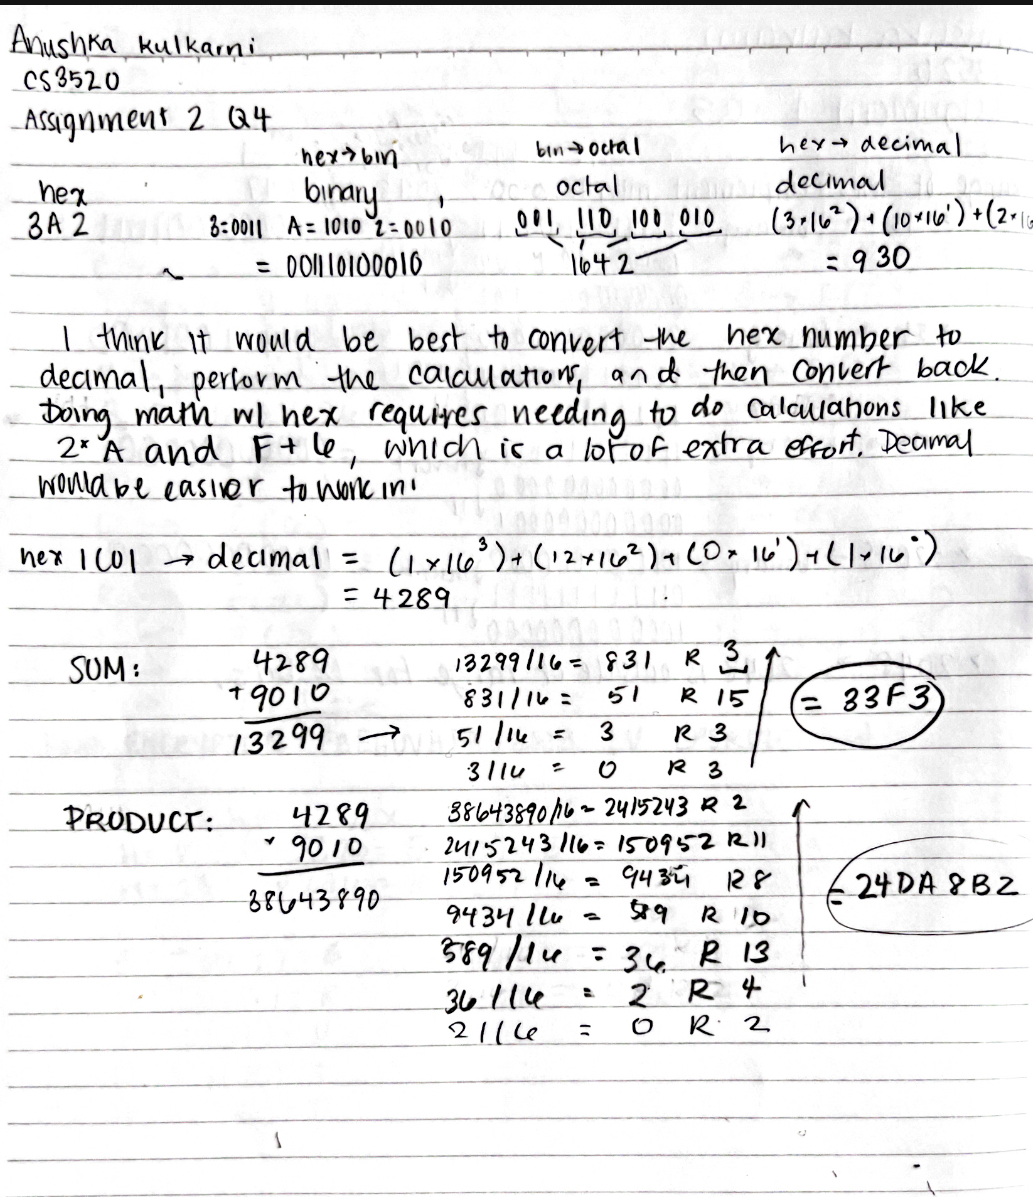 Anushka Kulkarni
CS3520
Assignment 2 Q4
hex→bin bin→octal hex→decimal
hex binary octal decimal
3A2 3=0011 A=1010 2=0010 001 110 100 010 (3×16²)+(10×16¹)+(2×16
= 001110100010 1642 = 930
I think it would be best to convert the hex number to
decimal, perform the calculations, and then convert back.
Doing math w/ hex requires needing to do calculations like
2×A and F+6, which is a lot of extra effort. Decimal
would be easier to work in!
hex 1C01 → decimal = (1×16³)+(12×16²)+(0×16¹)+(1×16⁰)
= 4289
SUM: 4289 13299/16 = 831 R 3
+9010 831/16 = 51 R 15 = 33F3
13299 → 51/16 = 3 R 3
3/16 = 0 R 3
PRODUCT: 4289 38643890/16 = 2415243 R 2
× 9010 2415243/16 = 150952 R 11
38643890 150952/16 = 9434 R 8 = 24DA8B2
9434/16 = 589 R 10
589/16 = 36 R 13
36/16 = 2 R 4
2/16 = 0 R 2